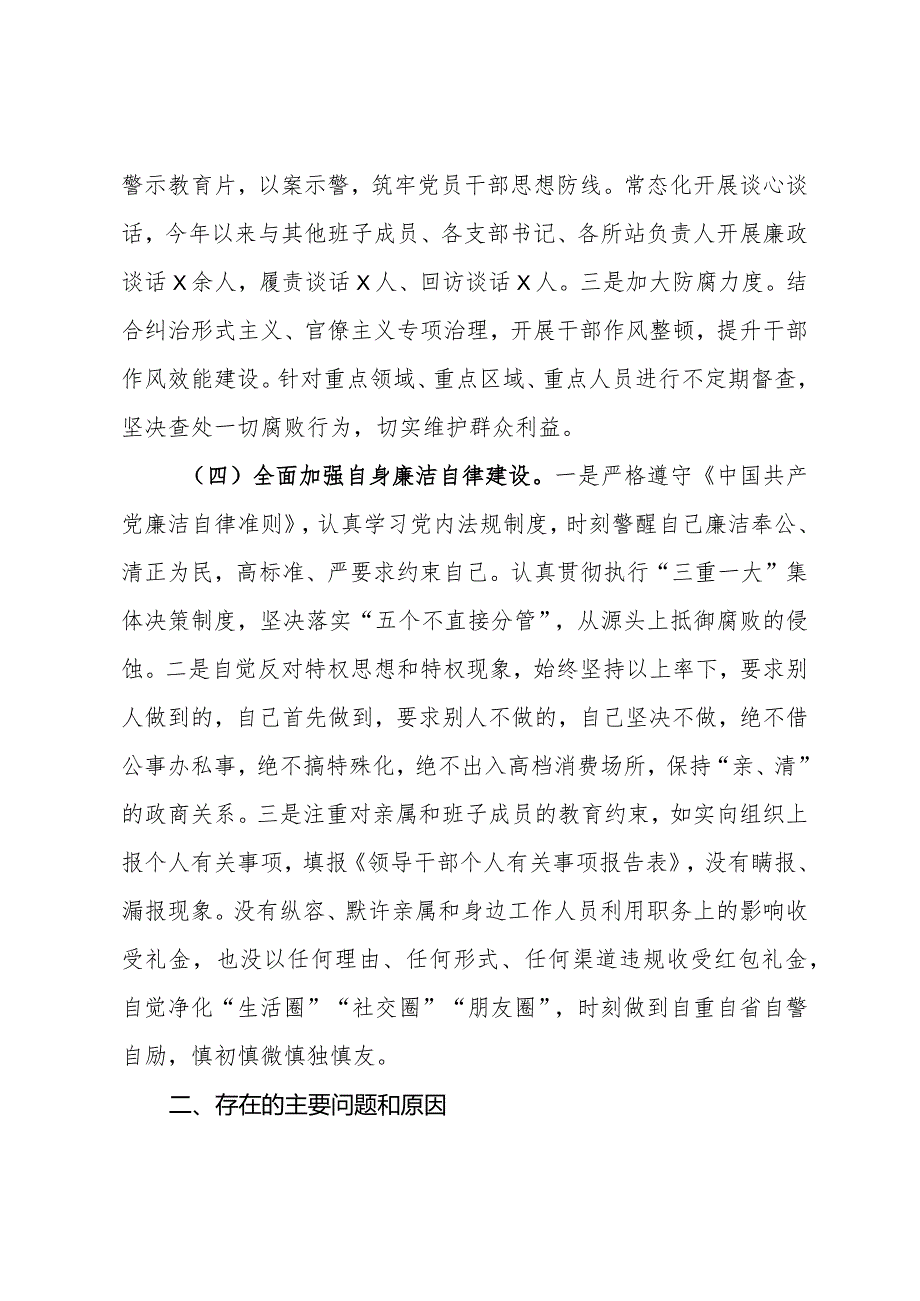 警示教育片，以案示警，筑牢党员干部思想防线。常态化开展谈心谈
话，今年以来与其他班子成员、各支部书记、各所站负责人开展廉政
谈话X余人，履责谈话X人、回访谈话X人。三是加大防腐力度。结
合纠治形式主义、官僚主义专项治理，开展干部作风整顿，提升干部
作风效能建设。针对重点领域、重点区域、重点人员进行不定期督查，
坚决查处一切腐败行为，切实维护群众利益。
（四）全面加强自身廉洁自律建设。一是严格遵守《中国共产
党廉洁自律准则》，认真学习党内法规制度，时刻警醒自己廉洁奉公、
清正为民，高标准、严要求约束自己。认真贯彻执行“三重一大”集
体决策制度，坚决落实“五个不直接分管”，从源头上抵御腐败的侵
蚀。二是自觉反对特权思想和特权现象，始终坚持以上率下，要求别
人做到的，自己首先做到，要求别人不做的，自己坚决不做，绝不借
公事办私事，绝不搞特殊化，绝不出入高档消费场所，保持“亲、清”
的政商关系。三是注重对亲属和班子成员的教育约束，如实向组织上
报个人有关事项，填报《领导干部个人有关事项报告表》，没有瞒报、
漏报现象。没有纵容、默许亲属和身边工作人员利用职务上的影响收
受礼金，也没以任何理由、任何形式、任何渠道违规收受红包礼金，
自觉净化“生活圈”“社交圈”“朋友圈”，时刻做到自重自省自警
自励，慎初慎微慎独慎友。
二、存在的主要问题和原因